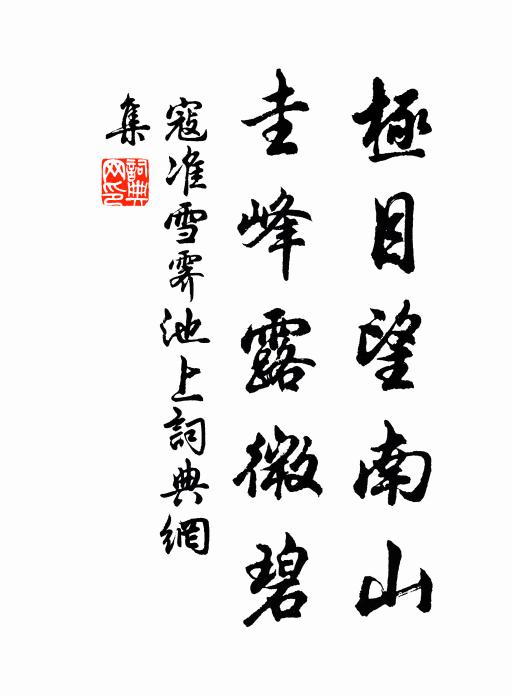 極目望南山
圭峰露微碧
寇准雪霽池上詞典網
集
詞典網印